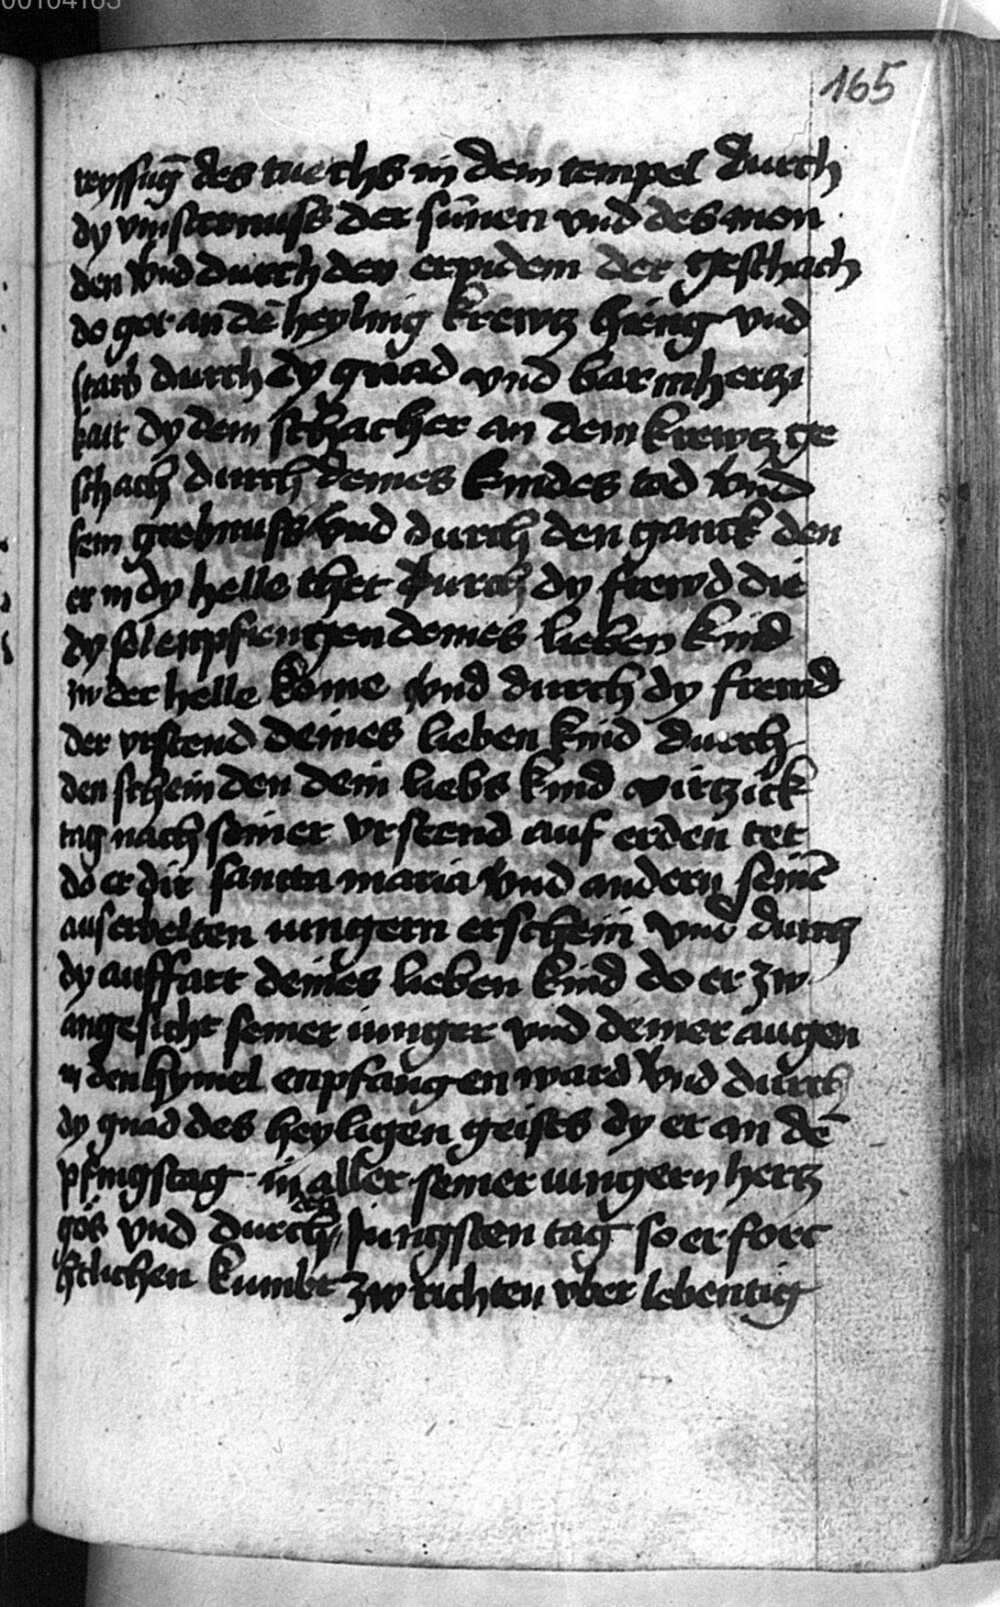 00104163
165
reyssug̅ des tuechs in dem tempel durch
dy vinsternuss der su̅nen vnd des mon
den vnd durch den erpidem der geschach
do got an de̅ heyling krewtz hieng vnd
starb durch dy gnad vnd barmhertzi
kait dy dem schacher an dem krewtz ge
schach durch deines kindes tod vnd
sein grebnuss vnd durch den ganck den
er in dy helle thet durch dy frewd die
dy sel enpfiengen deines lieben kind
zw der helle kome vnd durch dy frewd
der vrstend deines lieben kind durch
den schein den dein liebs kind virtzick
tag nach seiner vrstend auf erden tet
do er dir sancta maria vnd andern seine̅
auserbelten iungern erschein vnd durch
dy auffart deines lieben kind do er zw
angesicht seiner iunger vnd deiner augen
in den hymel enpfangen ward vnd durch
dy gnad des heyligen geists dy er an de̅
pfingstag in aller seiner iungern hertz
gos vnd durch den Jungsten tag so er forc
htlichen kumbt zw richten vber lebentig